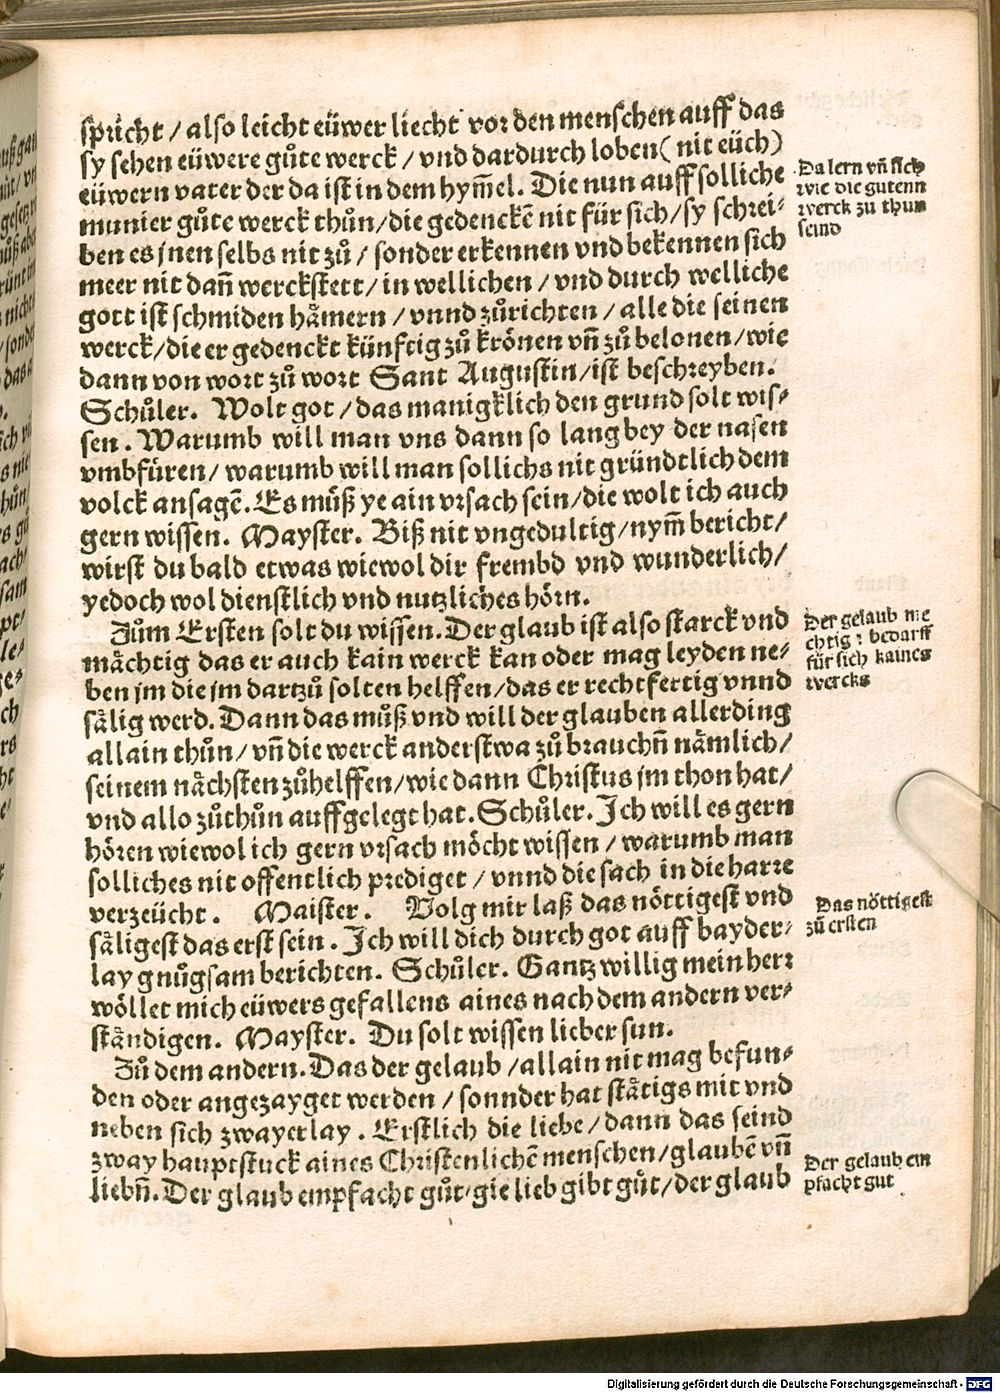 spricht / also leicht eüwer liecht vor den menschen auff das
sy sehen eüwere gůte werck / vnd dardurch loben ( nit eüch )
eüwern vater der da ist in dem hym̄el. Die nun auff solliche
munier gůte werck thůn / die gedenckē nit für sich / sy schrei⸗
ben es jnen selbs nit zů / sonder erkennen vnd bekennen sich
meer nit dañ werckstett / in wellichen / vnd durch welliche
gott ist schmiden håmern / vnnd zůrichten / alle die seinen
werck / die er gedenckt künftig zů krönen vñ zů belonen / wie
dann von wort zů wort Sant Augustin / ist beschreyben.
Schůler. Wolt got / das manigklich den grund solt wis⸗
sen. Warumb will man vns dann so lang bey der nasen
vmbfüren / warumb will man sollichs nit gründtlich dem
volck ansagē. Es můß ye ain vrsach sein / die wolt ich auch
gern wissen. Mayster. Biß nit vngedultig / nym̄ bericht /
wirst du bald etwas wiewol dir frembd vnd wunderlich /
yedoch wol dienstlich vnd nutzliches hörn.
Zům Ersten solt du wissen. Der glaub ist also starck vnd
måchtig das er auch kain werck kan oder mag leyden ne⸗
ben jm die jm dartzů solten helffen / das er rechtfertig vnnd
sålig werd. Dann das můß vnd will der glauben allerding
allain thůn / vñ die werck anderstwa zů brauchñ nåmlich /
seinem nåchsten zůhelffen / wie dann Christus jm thon hat /
vnd allo zůthůn auffgelegt hat. Schůler. Ich will es gern
hören wiewol ich gern vrsach möcht wissen / warumb man
solliches nit offentlich prediget / vnnd die sach in die harre
verzeücht. Maister. Volg mir laß das nöttigest vnd
såligest das erst sein. Ich will dich durch got auff bayder⸗
lay gnůgsam berichten. Schůler. Gantz willig mein herr
wöllet mich eüwers gefallens aines nach dem andern ver⸗
ståndigen. Mayster. Du solt wissen lieber sun.
Zů dem andern. Das der gelaub / allain nit mag befun⸗
den oder angezayget werden / sonnder hat ståtigs mit vnd
neben sich zwayerlay. Erstlich die liebe / dann das seind
zway hauptstuck aines Christenlichē menschen / glaubē vñ
liebñ. Der glaub empfacht gůt / gie lieb gibt gůt / der glaub
Da lern vñ sich
wie die gutenn
werck zu thun
seind
Der gelaub me
chtig : bedarff
für sich kaines
wercks
Das nöttigest
zů ersten
Der gelaub em
pfacht gut
Digitalisierung gefördert durch die Deutsche Forschungsgemeinschaft - DFG